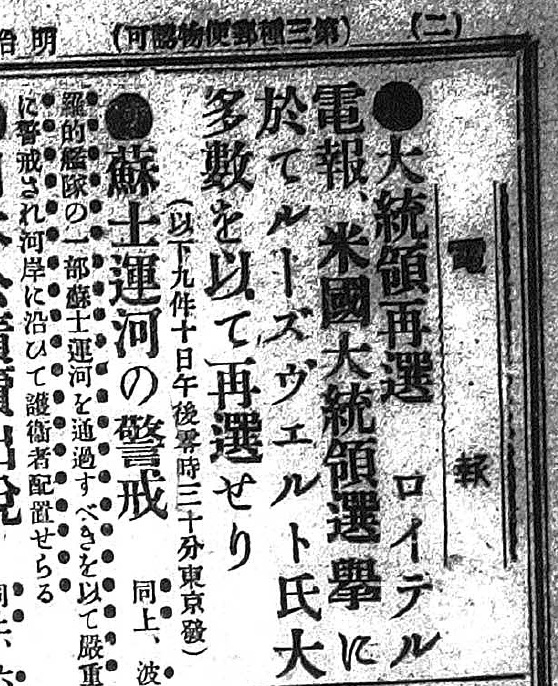 (二)
(第三種郵便物認可)
明治
電報
●大統領再選 ロイテル
電報、米國大統領選擧に
於てルーズヴェルト氏大
多數を以て再選せり
(以下九件十日午後零時三十分東京發)
●蘇士運河の警戒 同上、波
羅的艦隊の一部蘇士運河を通過すべきを以て嚴重
に警戒され河岸に沿ひて護衞者配置せらる